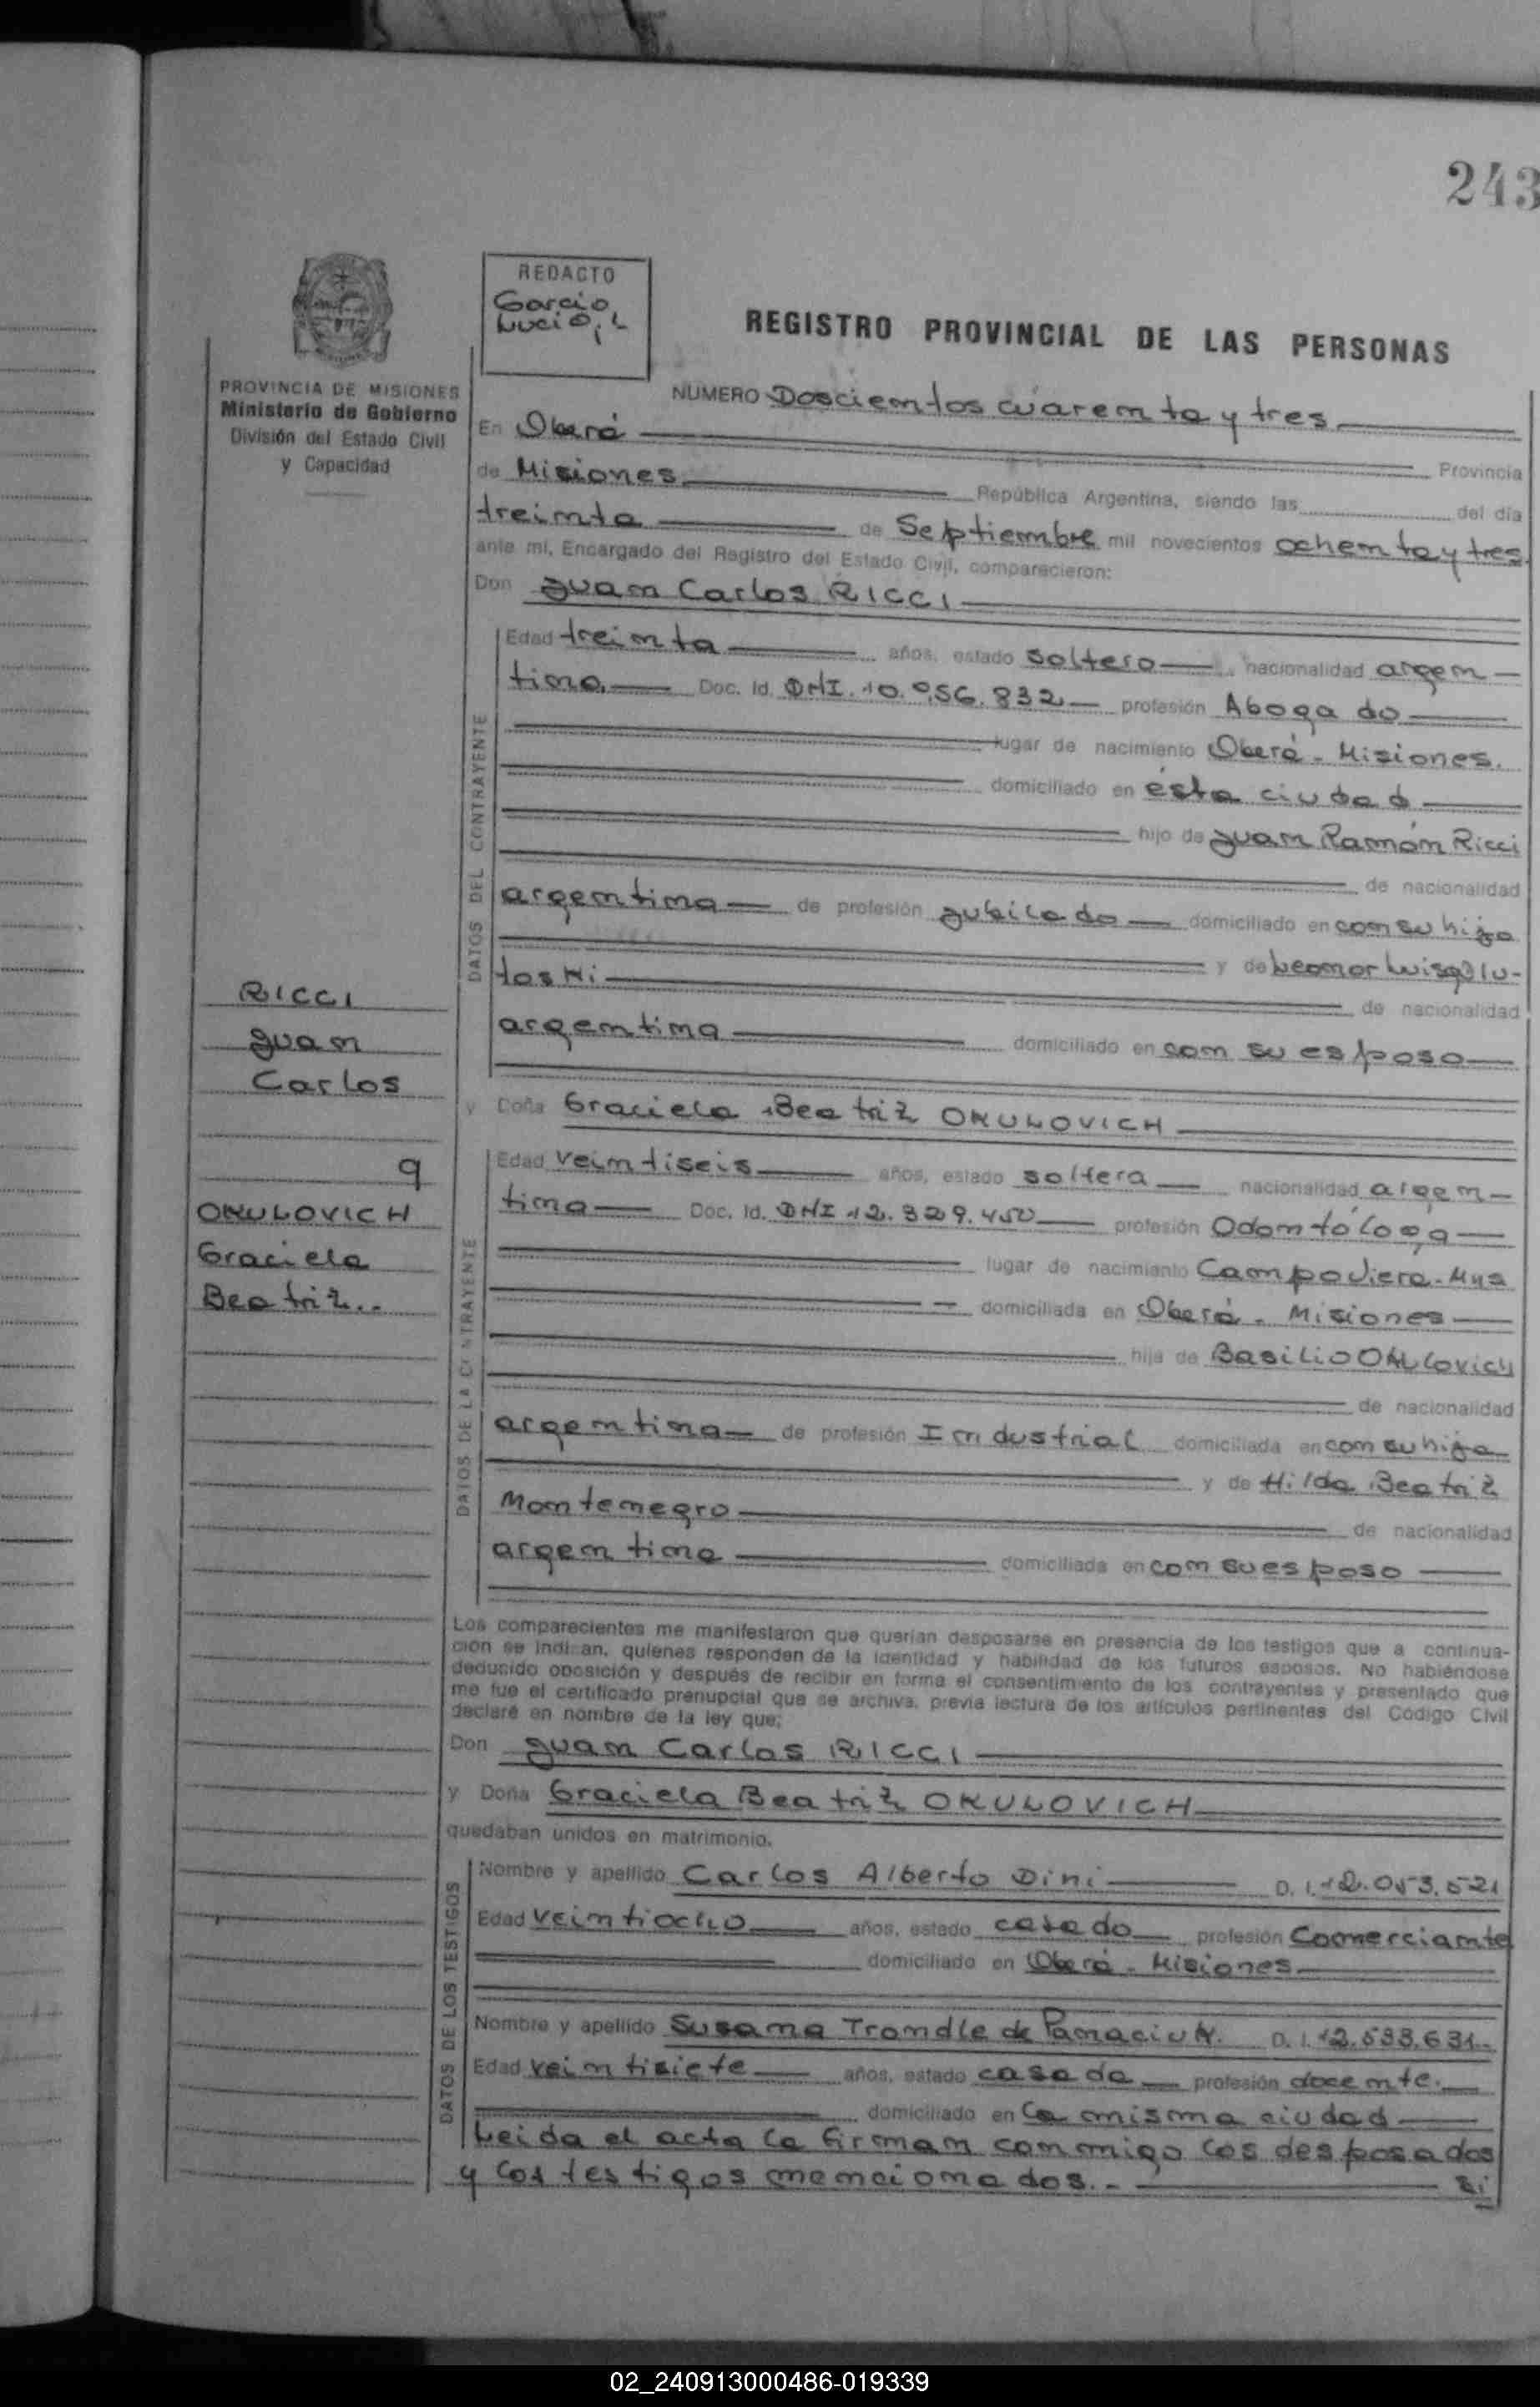 243
REDACTO
Garcia
Lucio, L
REGISTRO PROVINCIAL DE LAS PERSONAS
PROVINCIA DE MISIONES
Ministerio de Gobierno
División del Estado Civil
y Capacidad
NUMERO Doscientos cuarenta y tres
En Oberá Provincia
de Misiones República Argentina, siendo las del día
treinta de Septiembre mil novecientos ochenta y tres
ante mí, Encargado del Registro del Estado Civil, comparecieron:
Don Juan Carlos RICCI
DATOS DEL CONTRAYENTE
Edad treinta años, estado soltero nacionalidad argen-
tina Doc. Id. DNI. 10.056.832 profesión Abogado
lugar de nacimiento Oberá - Misiones.
domiciliado en ésta ciudad
hijo de Juan Ramón Ricci
de nacionalidad
argentina de profesión jubilado domiciliado en con su hijo
y de Leonor Luisa
de nacionalidad
argentina domiciliado en con su esposo
RICCI
Juan
Carlos
y
OKULOVICH
Graciela
Beatriz..
y Doña Graciela Beatriz OKULOVICH
DATOS DE LA CONTRAYENTE
Edad veintiseis años, estado soltera nacionalidad argen-
tina Doc. Id. DNI 12.329.450 profesión Odontóloga
lugar de nacimiento Campo Viera - Mnes
domiciliada en Oberá - Misiones
hija de Basilio Okulovich
de nacionalidad
argentina de profesión Industrial domiciliada en con su hija
y de Hilda Beatriz
Montenegro de nacionalidad
argentina domiciliada en con su esposo
Los comparecientes me manifestaron que querían desposarse en presencia de los testigos que a continua-
ción se indican, quienes responden de la identidad y habilidad de los futuros esposos. No habiéndose
deducido oposición y después de recibir en forma el consentimiento de los contrayentes y presentado que
me fue el certificado prenupcial que se archiva, previa lectura de los artículos pertinentes del Código Civil
declaré en nombre de la ley que;
Don Juan Carlos RICCI
y Doña Graciela Beatriz OKULOVICH
quedaban unidos en matrimonio.
DATOS DE LOS TESTIGOS
Nombre y apellido Carlos Alberto Dini D. I. 12.053.521
Edad veintiocho años, estado casado profesión Comerciante
domiciliado en Oberá - Misiones
Nombre y apellido Susana Trondle de Panaciuk. D. I. 12.533.631
Edad veintisiete años, estado casada profesión docente.
domiciliado en la misma ciudad
Leida el acta la firman conmigo los desposados
y los testigos mencionados.-
02_240913000486-019339